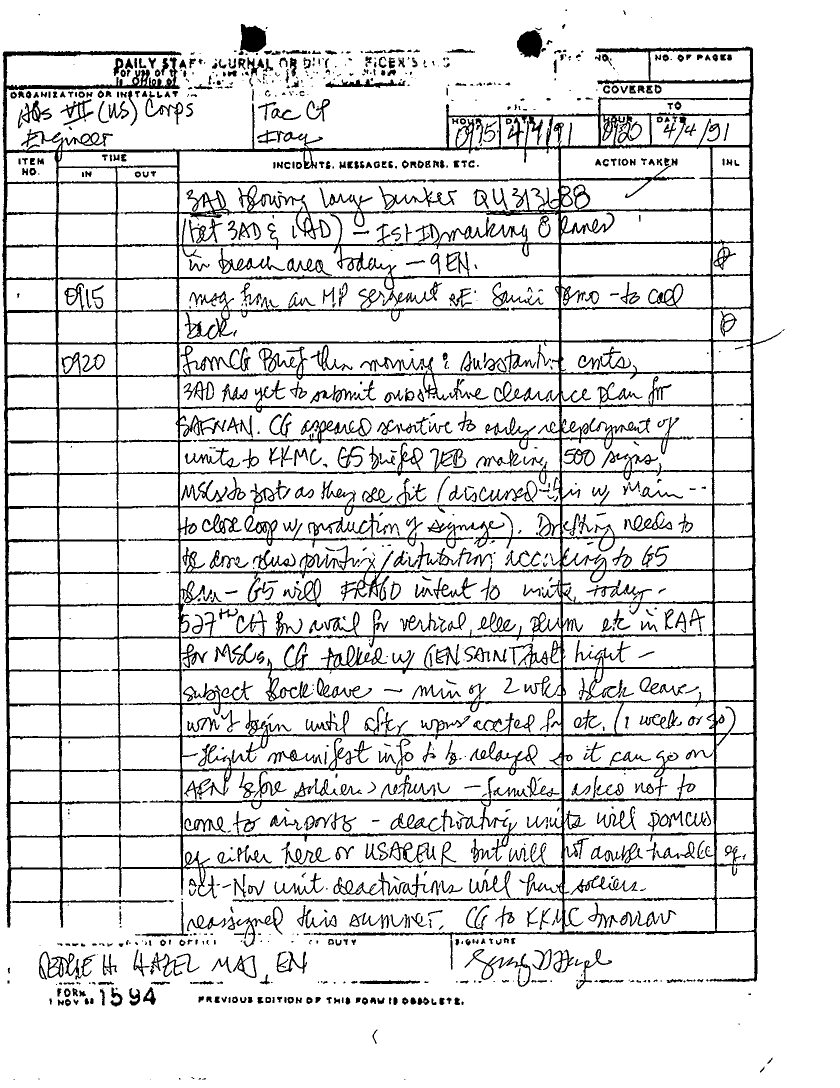 DAILY STAFF JOURNAL OR DUTY OFFICER'S LOG
NO. OF PAGES
ORGANIZATION OR INSTALLAT
COVERED
HQs VII (US) Corps
Engineer
Tac CP
Iraq
TO
HOUR DATE HOUR DATE
4/4/91 0920 4/4/91
ITEM NO. TIME INCIDENTS, MESSAGES, ORDERS, ETC. ACTION TAKEN INL
IN OUT
3AD blowing large bunker QU313688
(bet 3AD & 1AD) - 1st ID marking 8 lanes
in breach area today - 9EN.
0915 msg from an MP Sergeant RE: Saudi - to call
back.
0920 from CG Brief this morning: substantive cmts,
3AD has yet to submit substantive clearance plan for
SAFWAN. CG appeared sensitive to early redeployment of
units to KKMC. G5 briefed 7EB making 500 signs,
MSCs to post as they see fit (discussed this w/ Main --
to close loop w/ production of signage). Drafting needs to
be done plus printing/distribution according to G5
- G5 will FRAGO intent to units today -
527th avail for vertical, elec, plum etc in RAA
for MSCs, CG talked w/ GEN SAINT last night -
subject Block leave - min of 2 wks block leave,
won't begin until after wpns accted for etc. (1 week or so)
- flight manifest info to be relayed so it can go on
AFN before soldiers return - families asked not to
come to airports - deactivating units will POMCUS
eq either here or USAREUR but will not double handle eq.
Oct-Nov unit deactivations will have soldiers
reassigned this summer. CG to KKMC tomorrow
DUTY
SIGNATURE
GEORGE H. HAZEL MAJ, EN
FORM 1 NOV 1594 PREVIOUS EDITION OF THIS FORM IS OBSOLETE.